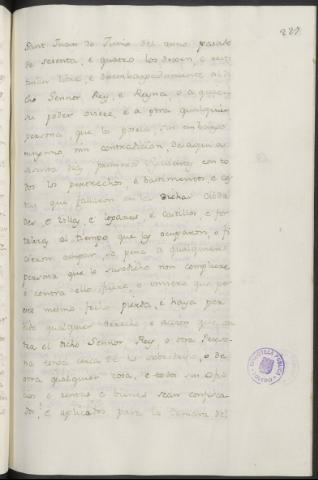 227
Sant Juan de Junio del anno pasado
de setenta, e quatro los dexen, e resti
tuian libre, e desembargadamente al di
cho Sennor Rey, e Reyna, o a quien
su poder oviere, e a otra qualquier
persona que la poseia, sin embargo
ninguno, nin contradicion, de aqui a
tos los pertrechos, e bastimentos, e co
sas que fallaron en las dichas cibda
des, e villas, e logares, e castillos, e for
talezas al tiempo que las ocuparon, o fi
cieron ocupar, so pena a qualquiera
persona que lo susodicho non compliere
e contra ello fuere, o viniere que por
ese mesmo fecho pierda, e haya per
dido qualquier derecho, e accion que
tra el dicho Sennor Rey, o otra Perso
na tenga cerca de lo sobredicho, o de
otra qualquier cosa, e todos sus ofi
cios e rentas e bienes sean confisca
dos, e aplicados para la Camara del
BIBLIOTECA PUBLICA
TOLEDO